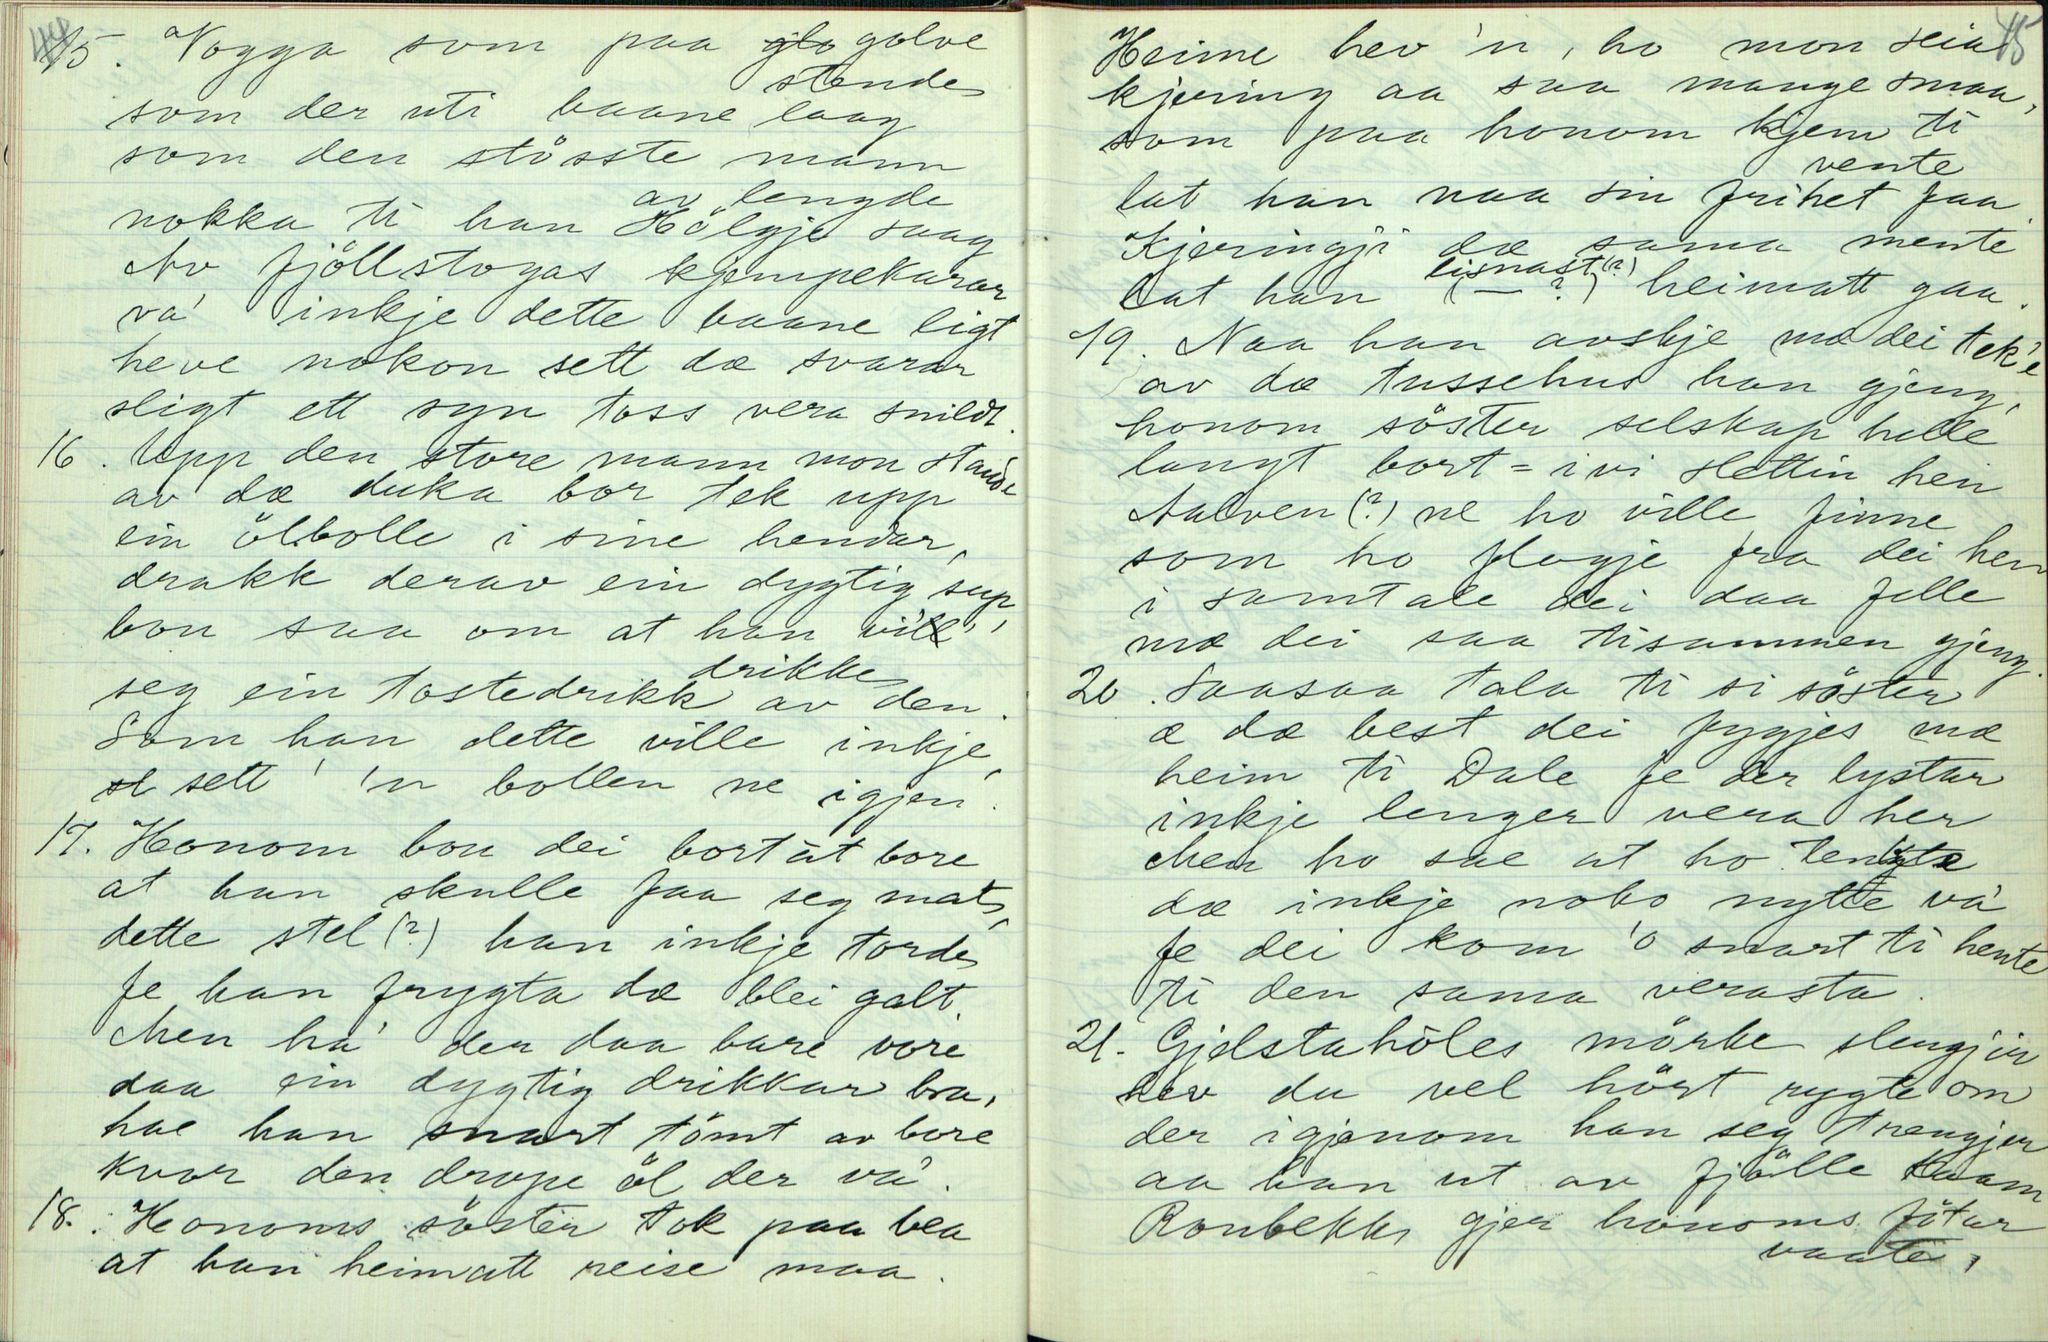 44
15. Vogga som paa glo golve
stende
som der uti baane laag
som den stösste mann
av lengde
nokka ti han Hölgje saag
Av fjöllstogas kjempekarar
va' inkje dette baane ligt
heve nokon sett dæ svarar
sligt ett syn toss vera snildt.
16. Upp den store mann mon stande
av dæ duka bor tek upp
ein ölbolle i sine hendar,
drakk derav ein dygtig sup,
bou saa om at han vill'
drikke
seg ein tostedrikk av den.
Som han dette ville inkje,
sl sett' 'n bollen ne igjen.
17. Honom bou dei bort åt bore
at han skulle faa seg mat,
dette stel (?) han inkje torde
fe han frygta dæ blei galt.
Men ha' der daa bare vore
saa ein dygtig drikkar bra,
hae han snart tömt av bore
kvar den drope öl der va'.
18. Honoms söster tok paa bea
at han heimatt reise maa.
45
Heime hev 'n, ho mon seia
kjæring aa saa mange smaa,
som paa honom kjem ti
vente
lat han naa sin frihet faa.
Kjæringji dæ sama mente
eisnast (?)
Lat han (— ?) heimatt gaa.
19. Naa han avskje mæ dei tek'e
av dæ tussehus han gjeng,
honom söster selskap helle
langt bort = ivi slettin hen
Aalven (?) ne ho ville finne
som ho flogje fra dei hen
i samtale dei daa felle
mæ dei saa tisammen gjeng.
20. Saasaa tala ti si söster
æ dæ best dei fygjes mæ
heim ti Dale fe der lystar
inkje lenger vera her
Men ho sae at ho tenkte
dæ inkje noko nytte va'
fe dei kom 'o snart ti hente
ti den sama verasta.
21. Gjelstahöles mörke slengjir
hev du vel hört rygte om
der igjenom han seg trengjer
aa han ut av fjölle kaam
Ronbekk gjer honoms fötar
vaate,